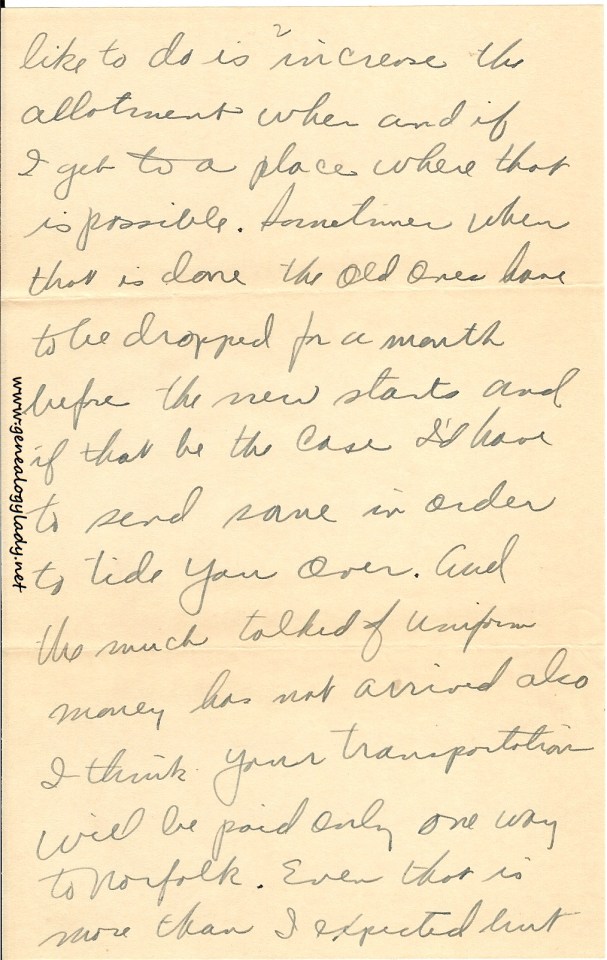 2
like to do is increase the
allotment when and if
I get to a place where that
is possible. Sometimes when
that is done the old ones have
to be dropped for a month
before the new starts and
if that be the case I'd have
to send some in order
to tide you over. And
the much talked of uniform
money has not arrived also
I think your transportation
will be paid only one way
to Norfolk. Even that is
more than I expected but
www.genealogylady.net